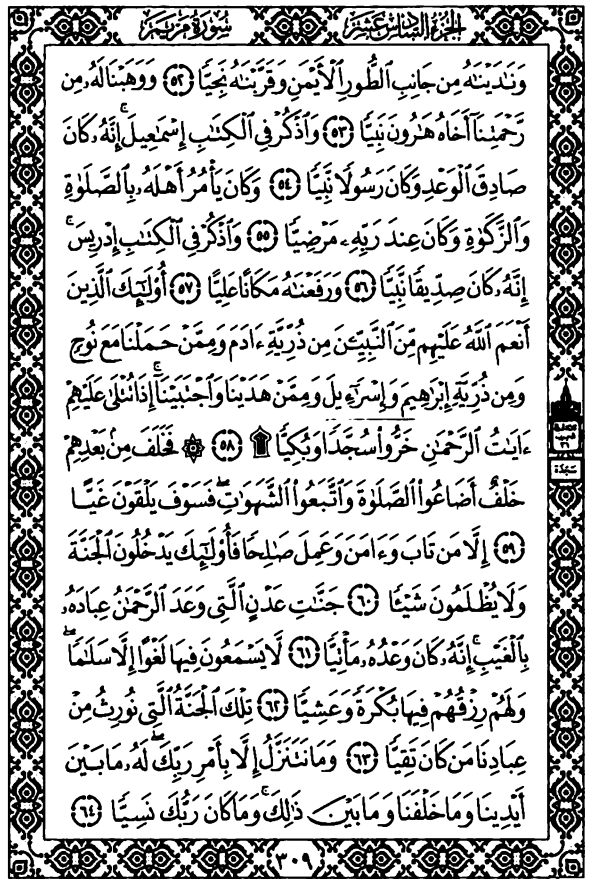 سُورَةُ مَرْيَمَ
الجُزْءُ السَّادِسَ عَشَرَ
وَنَٰدَيْنَٰهُ مِن جَانِبِ ٱلطُّورِ ٱلْأَيْمَنِ وَقَرَّبْنَٰهُ نَجِيًّا ٥٢ وَوَهَبْنَا لَهُۥ مِن
رَّحْمَتِنَآ أَخَاهُ هَٰرُونَ نَبِيًّا ٥٣ وَٱذْكُرْ فِى ٱلْكِتَٰبِ إِسْمَٰعِيلَ ۚ إِنَّهُۥ كَانَ
صَادِقَ ٱلْوَعْدِ وَكَانَ رَسُولًا نَّبِيًّا ٥٤ وَكَانَ يَأْمُرُ أَهْلَهُۥ بِٱلصَّلَوٰةِ
وَٱلزَّكَوٰةِ وَكَانَ عِندَ رَبِّهِۦ مَرْضِيًّا ٥٥ وَٱذْكُرْ فِى ٱلْكِتَٰبِ إِدْرِيسَ ۚ
إِنَّهُۥ كَانَ صِدِّيقًا نَّبِيًّا ٥٦ وَرَفَعْنَٰهُ مَكَانًا عَلِيًّا ٥٧ أُو۟لَٰٓئِكَ ٱلَّذِينَ
أَنْعَمَ ٱللَّهُ عَلَيْهِم مِّنَ ٱلنَّبِيِّـۧنَ مِن ذُرِّيَّةِ ءَادَمَ وَمِمَّنْ حَمَلْنَا مَعَ نُوحٍ
وَمِن ذُرِّيَّةِ إِبْرَٰهِيمَ وَإِسْرَٰٓءِيلَ وَمِمَّنْ هَدَيْنَا وَٱجْتَبَيْنَآ ۚ إِذَا تُتْلَىٰ عَلَيْهِمْ
ءَايَٰتُ ٱلرَّحْمَٰنِ خَرُّوا۟ سُجَّدًا وَبُكِيًّا ۩ ٥٨ ۞ فَخَلَفَ مِنۢ بَعْدِهِمْ
خَلْفٌ أَضَاعُوا۟ ٱلصَّلَوٰةَ وَٱتَّبَعُوا۟ ٱلشَّهَوَٰتِ ۖ فَسَوْفَ يَلْقَوْنَ غَيًّا
٥٩ إِلَّا مَن تَابَ وَءَامَنَ وَعَمِلَ صَٰلِحًا فَأُو۟لَٰٓئِكَ يَدْخُلُونَ ٱلْجَنَّةَ
وَلَا يُظْلَمُونَ شَيْـًٔا ٦٠ جَنَّٰتِ عَدْنٍ ٱلَّتِى وَعَدَ ٱلرَّحْمَٰنُ عِبَادَهُۥ
بِٱلْغَيْبِ ۚ إِنَّهُۥ كَانَ وَعْدُهُۥ مَأْتِيًّا ٦١ لَّا يَسْمَعُونَ فِيهَا لَغْوًا إِلَّا سَلَٰمًا ۖ
وَلَهُمْ رِزْقُهُمْ فِيهَا بُكْرَةً وَعَشِيًّا ٦٢ تِلْكَ ٱلْجَنَّةُ ٱلَّتِى نُورِثُ مِنْ
عِبَادِنَا مَن كَانَ تَقِيًّا ٦٣ وَمَا نَتَنَزَّلُ إِلَّا بِأَمْرِ رَبِّكَ ۖ لَهُۥ مَا بَيْنَ
أَيْدِينَا وَمَا خَلْفَنَا وَمَا بَيْنَ ذَٰلِكَ ۚ وَمَا كَانَ رَبُّكَ نَسِيًّا ٦٤
سَجْدَة
٣٠٩